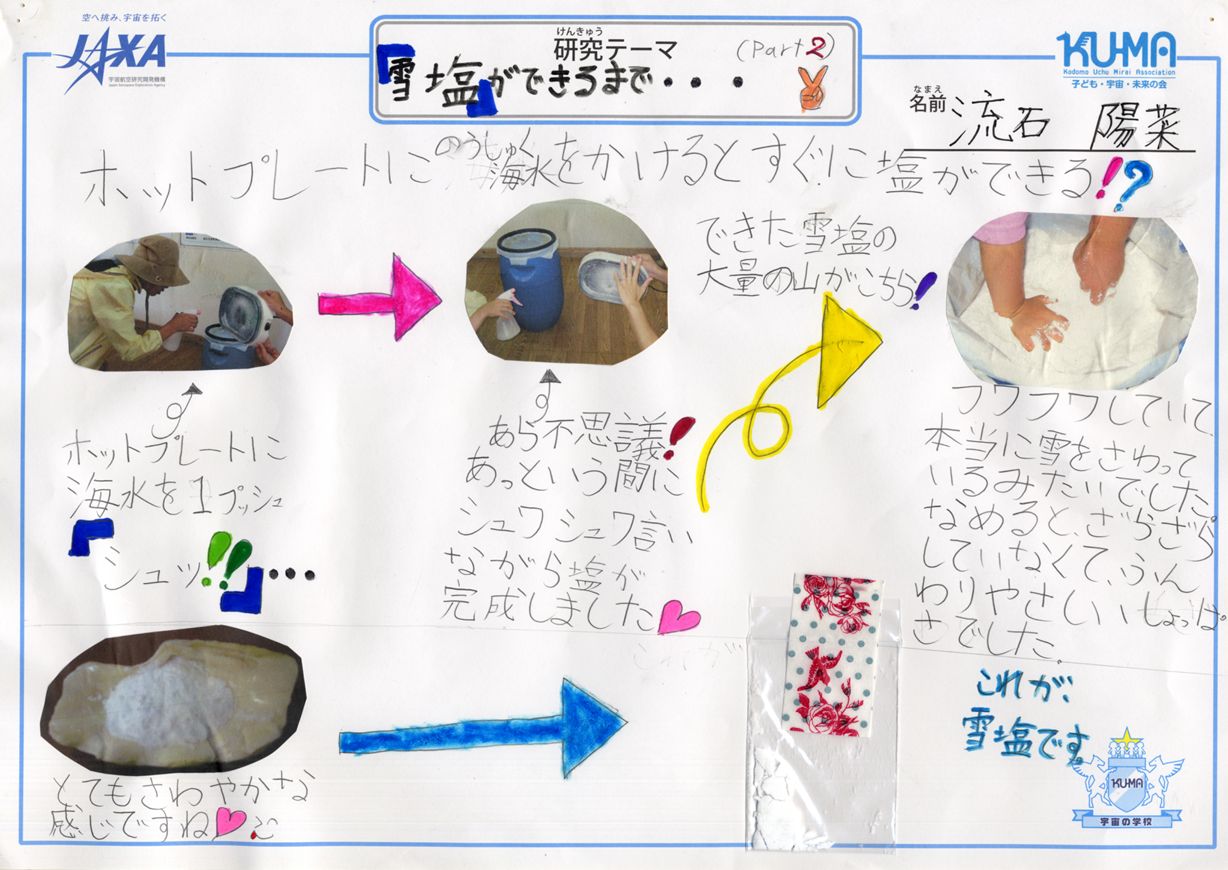 空へ挑み、宇宙を拓く
JAXA
宇宙航空研究開発機構
Japan Aerospace Exploration Agency
けんきゅう
研究テーマ
(Part2)
『雪塩』ができるまで・・・
KU-MA
Kodomo Uchu Mirai Association
子ども・宇宙・未来の会
なまえ
名前 流石 陽菜
のうしゅく
ホットプレートに海水をかけるとすぐに塩ができる!?
ホットプレートに
海水を1プッシュ
『シュッ!!』・・・
あら不思議!
あっという間に
シュワシュワ言い
ながら塩が
完成しました
できた雪塩の
大量の山がこちら!
フワフワしていて、
本当に雪をさわって
いるみたいでした。
なめると、ざらざら
していなくて、ふん
わりやさしいしょっぱ
さでした。
とてもさわやかな
感じですね
これが
これが、
雪塩です。
KU-MA
宇宙の学校